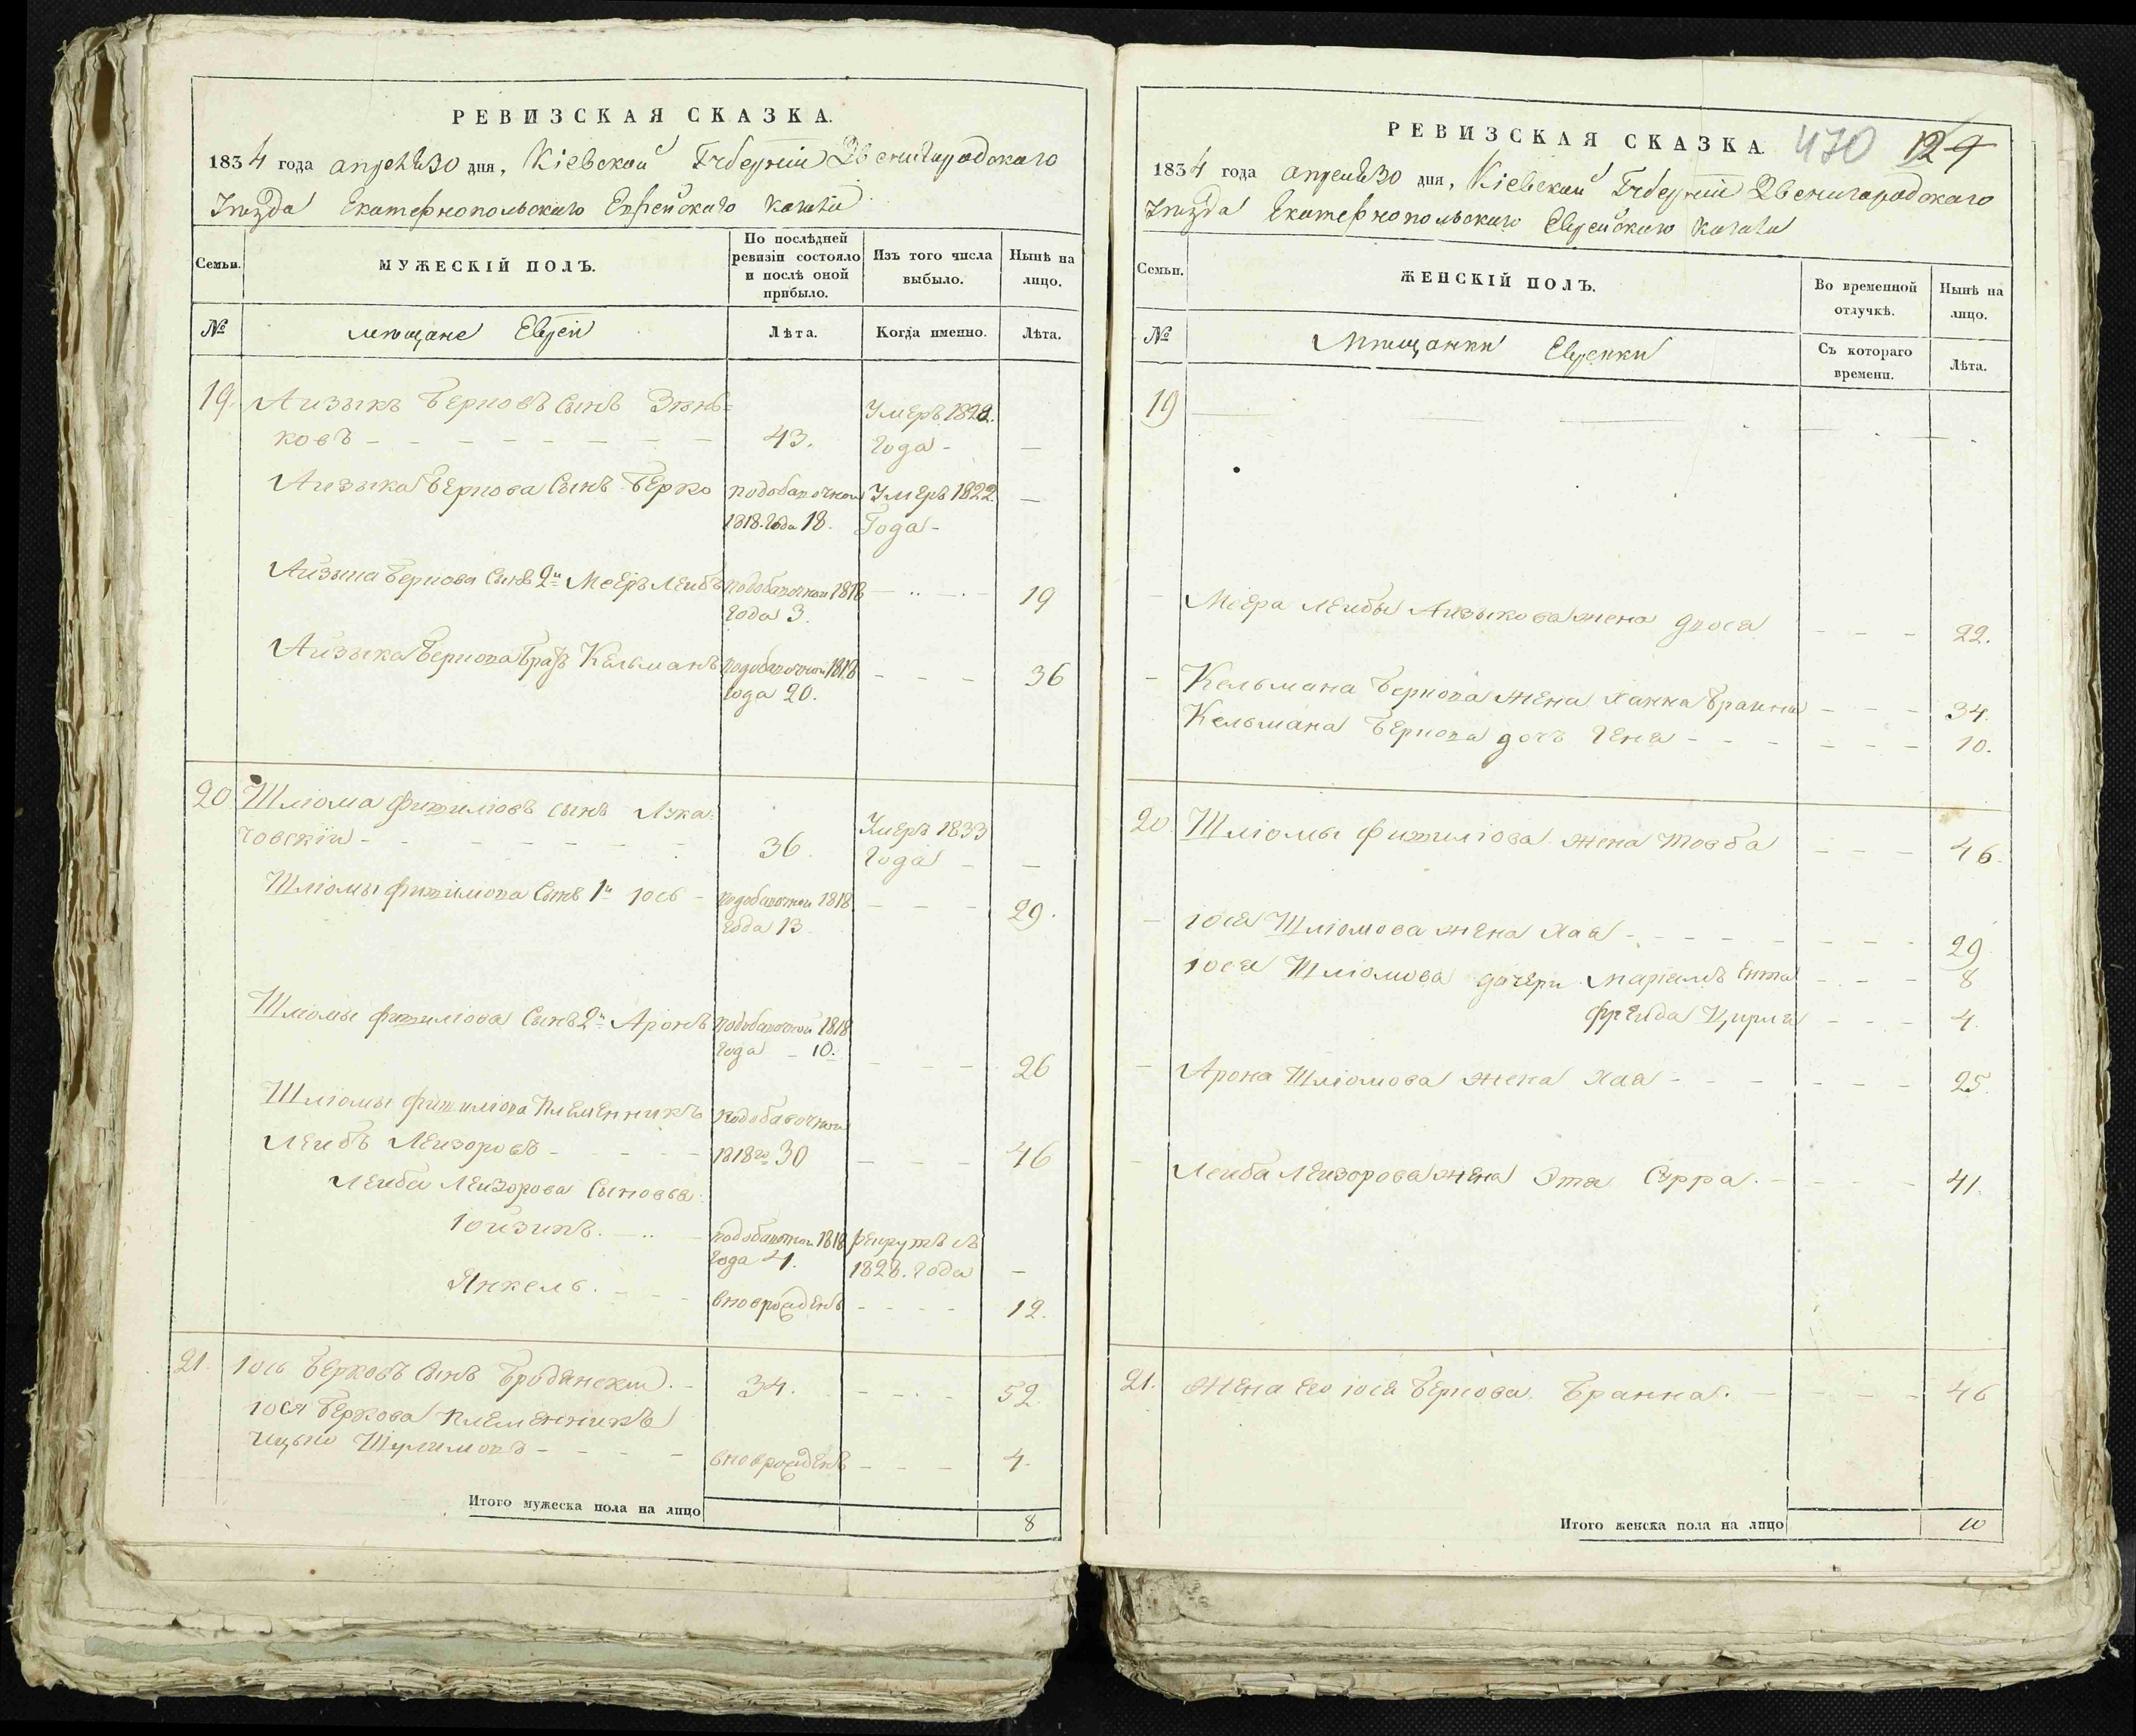 РЕВИЗСКАЯ СКАЗКА.
1834 года апреля 30 дня, Кіевской Губерніи Звенигородскаго
Уезда Екатеринопольскаго Еврейскаго кагала
Семьи.
МУЖЕСКІЙ ПОЛЪ.
По послѣдней ревизіи состояло и послѣ оной прибыло.
Изъ того числа выбыло.
Нынѣ на лицо.
№
мещане Евреи
Лѣта.
Когда именно.
Лѣта.
19. Аизыкъ Берковъ сынъ Зинь=
ковъ 43. Умеръ 1822. года
Аизыка Беркова сынъ Берко подобавочной 1818. года 18. Умеръ 1822 года
Айзыка Беркова сынъ 2й Мееръ Леибъ подобавочной 1818 года 3. 19
Айзыка Беркова братъ Кельманъ подобавочной 1818 года 20. 36
20. Шліома сынъ Лука=
човскіи 36. Умеръ 1833 года
Шліомы сынъ 1й Іось подобавочной 1818 года 13. 29.
Шліомы сынъ 2й Аронъ подобавочной 1818 года 10. 26
Шліомы племенникъ подобавочной
Леибъ Леизоровъ 1818го 30 46
Леиба Леизорова сыновья:
подобавочной 1818 года 4. 1828. года
Янкель. вноврожденъ 12.
21. Іось Берковъ сынъ 34. 52.
Іося Беркова племенникъ
вноврожденъ 4.
Итого мужеска пола на лицо 8
РЕВИЗСКАЯ СКАЗКА 470 129
1834 года апреля 30 дня, Кіевской Губерніи Звенигородскаго
Уезда Екатеринопольскаго Еврейскаго кагала
Семьи.
ЖЕНСКІЙ ПОЛЪ.
Во временной отлучкѣ.
Нынѣ на лицо.
№
Мещанки Еврейки
Съ котораго времени.
Лѣта.
19
Меера Леибы Аизыкова жена Двося 22.
Кельмана Беркова жена Ханна Браина 34.
Кельмана Беркова дочь Геня 10.
20. Шліомы жена Товба 46.
Іося Шліомова жена Хая 29
Іося Шліомова дочери Маріемъ Ента 8
Фрейда Цирля 4.
Арона Шліомова жена Хая 25.
Леиба Леизорова жена Эта Сурра. 41.
21. Жена его Іося Беркова Бранна. 46
Итого женска пола на лицо 10